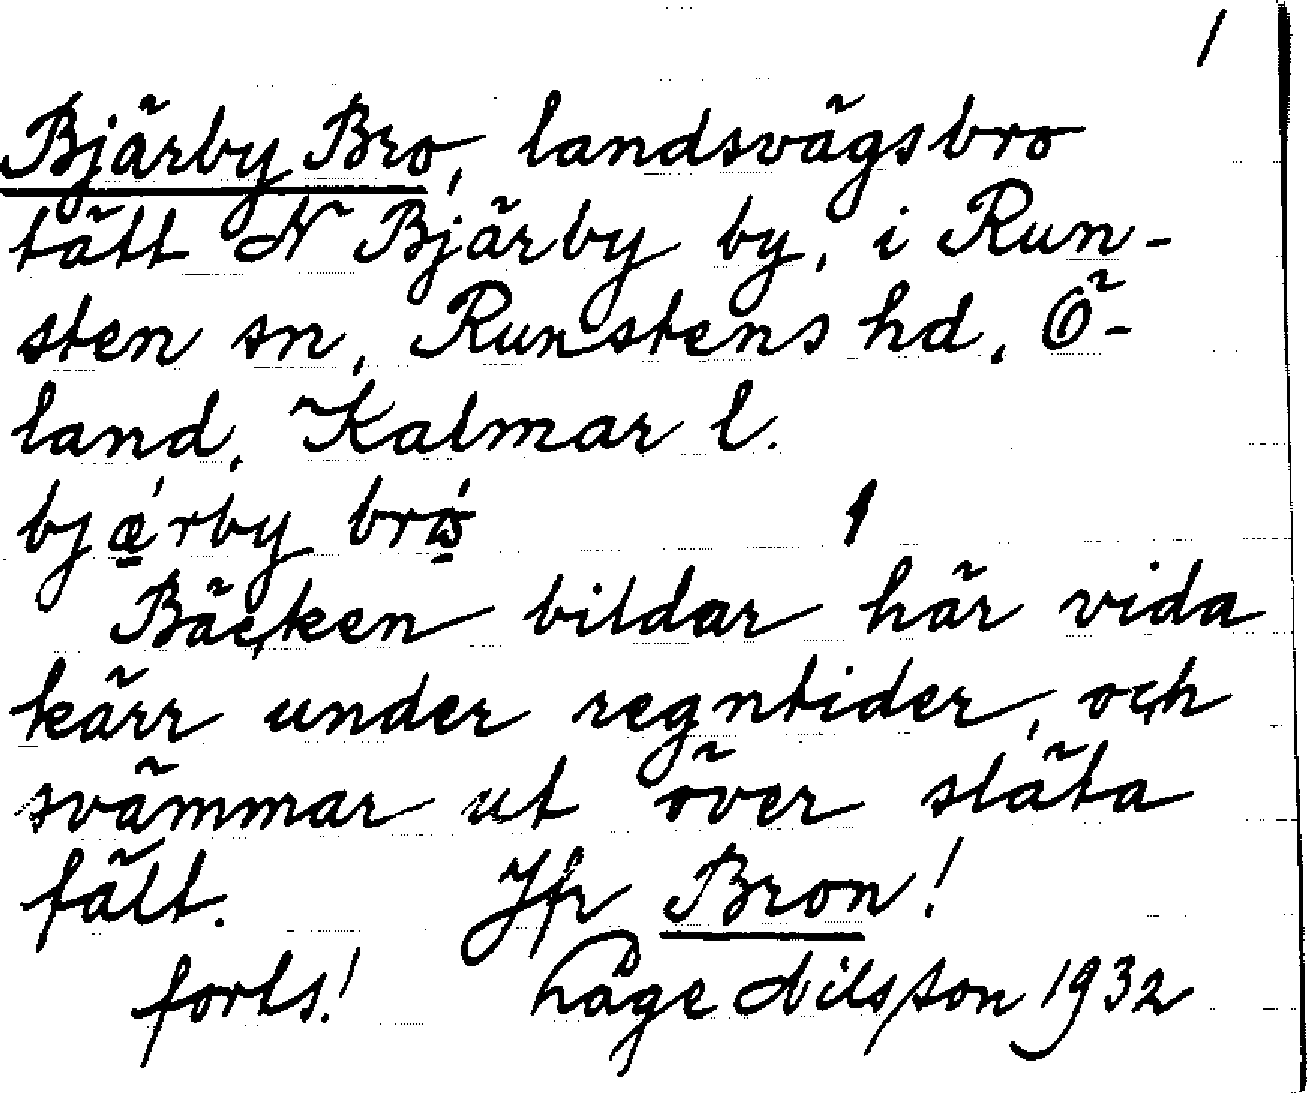 1
Bjärby Bro, landsvägsbro
tätt N Bjärby by, i Run-
sten sn, Runstens hd, Ö-
land, Kalmar l.
bjǽrby brώ̱ 1
Bäcken bildar här vida
kärr under regntider, och
svämmar ut över släta
fält. Jfr Bron!
forts! Håge Nilsson 1932